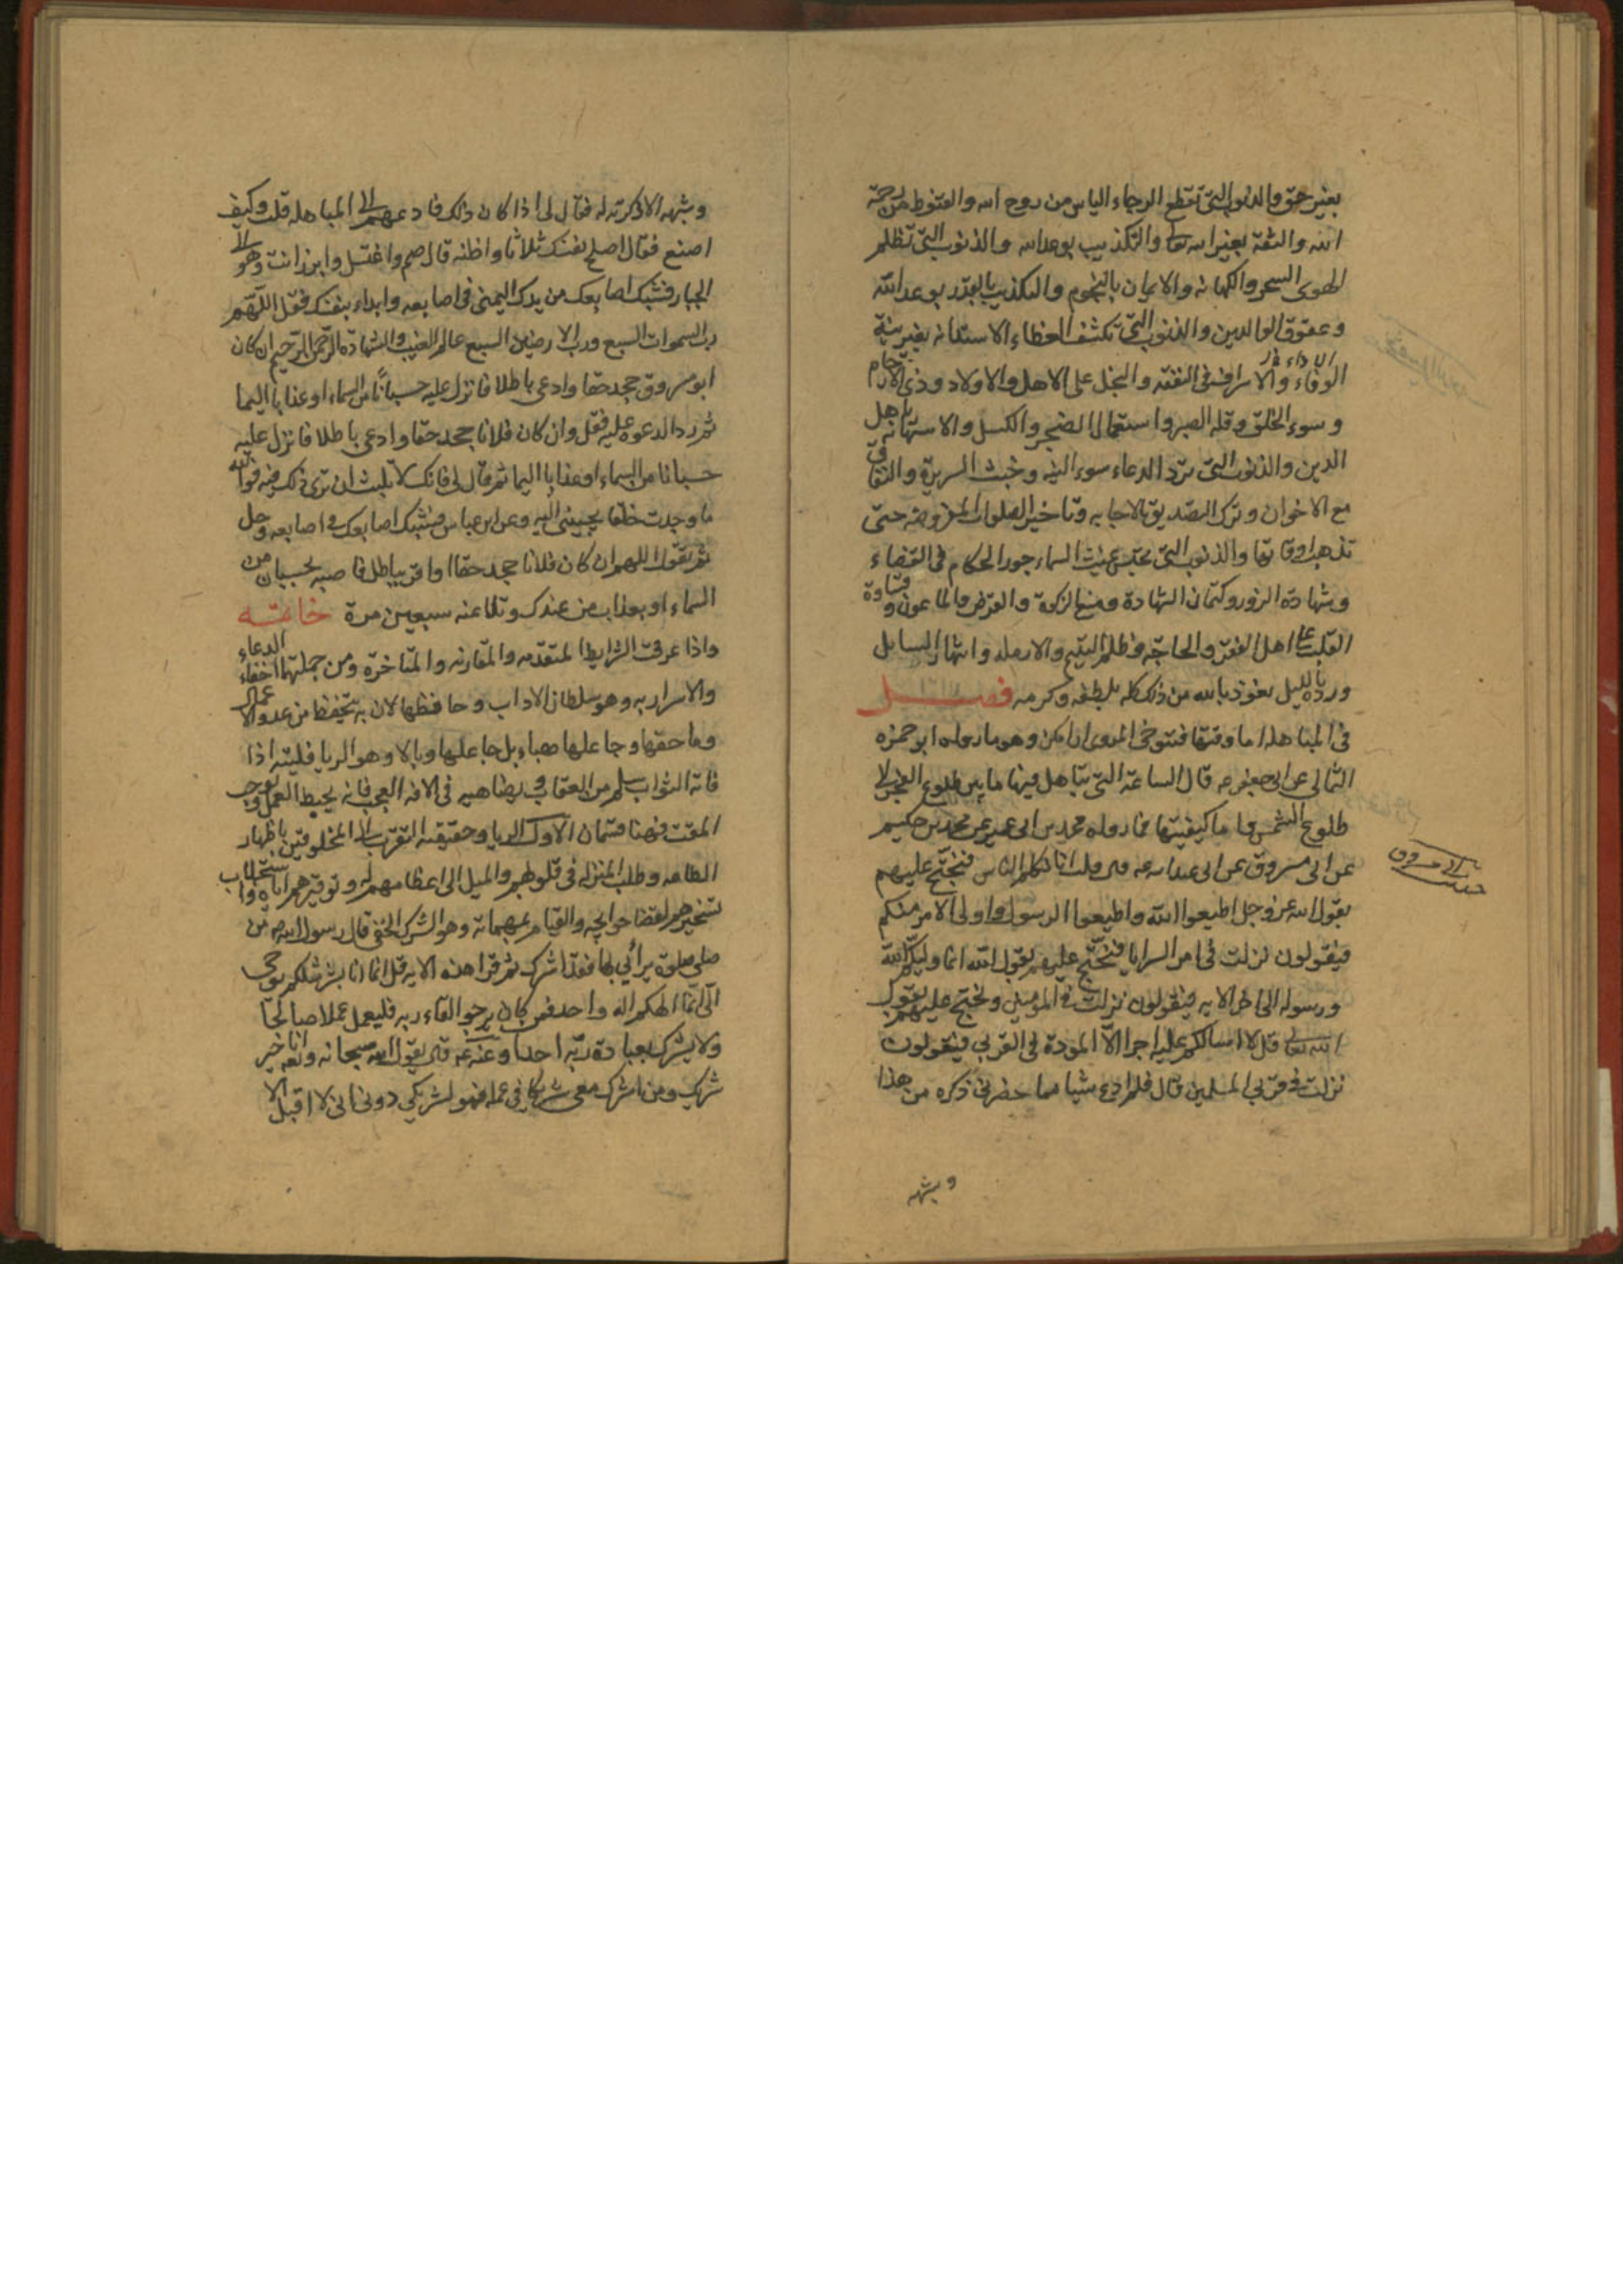 بغير حق والذنوب التي تقطع الرجاء الياس من روح الله والقنوط من رحمة
الله والثقة بغير الله تعالى والتكذيب بوعد الله والذنوب التي تظلم
الهوى السحر والكهانه والايمان بالنجوم والتكذيب بالقدر بوعد الله
وعقوق الوالدين والذنوب التي تكشف الغطاء الاستدانه بغير نية
الوفاء والاسراف في النفقه والبخل على الاهل والاولاد وذي الارحام
الاداء
وسوء الخلق وقله الصبر واستعمال الضجر والكسل والاستهانه باهل
الدين والذنوب التي ترد الدعاء سوء النيه وخبث السريرة والنفاق
مع الاخوان وترك التصديق بالاجابه وتاخير الصلوات المفروضه حتى
تذهب اوقاتها والذنوب التي تحبس غيث السماء جور الحكام في القضاء
وشهادة الزور وكتمان الشهادة ومنع الزكوة والقرض والماعون وقساوة
القلب على اهل الفقر والحاجه وظلم اليتيم والارمله وانتهار السايل
ورده بالليل نعوذ بالله من ذلك كله بلطفه وكرمه فصل
في المباهله اما وقتها فتوخى المروى ان امكن وهو ما رواه ابو حمزه
الثمالي عن ابي جعفر ع قال الساعة التي تباهل فيها ما بين طلوع الفجر الى
طلوع الشمس واما كيفيتها فما رواه محمد بن ابي عمير عن محمد بن حكيم
عن ابي مسروق عن ابي عبد الله ع قال قلت انا نكلم الناس فنحتج عليهم
بقول الله عز وجل اطيعوا الله واطيعوا الرسول واولى الامر منكم
فيقولون نزلت في امر السرايا فنحتج عليهم بقول الله انما وليكم الله
ورسوله الى اخر الايه فيقولون نزلت في المومنين ونحتج عليهم بقول
الله تعالى قل لا اسالكم عليه اجرا الا المودة في القربى فيقولون
نزلت في قربى المسلمين قال فلم ادع شيا مما حضرني ذكره من هذا
وشبهه
حديث ابي مسروق
وشبهه الا ذكرته له فقال لي اذا كان ذلك فادعهم الى المباهله قلت وكيف
اصنع فقال اصلح نفسك ثلاثا واظنه قال صم واغتسل وابرز انت وهو الى
الجبار فشبك اصابعك من يدك اليمنى في اصابعه وابداء بنفسك فقل اللهم
رب السموات السبع ورب الارضين السبع عالم الغيب والشهادة الرحمن الرحيم ان كان
ابو مسروق جحد حقا وادعى باطلا فانزل عليه حسبانا من السماء او عذابا اليما
ثم رد الدعوه عليه فقل وان كان فلانا جحد حقا وادعى باطلا فانزل عليه
حسبانا من السماء او عذابا اليما ثم قال لي فانك لا تلبث ان ترى ذلك فيه فوالله
ما وجدت خلقا يجيبني اليه وعن ابن عباس فشبك اصابعك في اصابعه وحل
ثم تقول اللهم ان كان فلانا جحد حقا او اقر بباطل فاصبه بحسبان من
السماء او بعذاب من عندك وتلاعنه سبعين مرة خاتمه
واذا عرفت الشرايط المتقدمه والمقارنه والمتاخرة ومن جملتها اخفاء الدعاء
والاسرار به وهو سلطان الاداب وحافظها لان به تحفظ من عدو الاعمال
وماحقها وجاعلها هباء بل جاعلها وبالا وهو الريا فليته اذا
فاته الثواب سلم من العقاب ويضاهيه في الافة العجب فانه يحبط العمل ويوجب
المقت فهنا قسمان الاول الريا وحقيقته التقرب الى المخلوقين باظهار
الطاعه وطلب المنزله في قلوبهم والميل الى اعظامهم له وتوقيرهم اياه واستجلاب
تسخيرهم لقضا حوايجه والقيام بمهماته وهو الشرك الخفي قال رسول الله ص من
صلى صلوة يرائي بها فقد اشرك ثم قرا هذه الايه قل انما انا بشر مثلكم يوحى
الى انما الهكم اله واحد فمن كان يرجوا لقاء ربه فليعمل عملا صالحا
ولا يشرك بعبادة ربه احدا وعنه ع قال يقول الله سبحانه وتعالى انا خير
شريك ومن اشرك معي شريكا في عمله فهو لشريكي دوني اني لا اقبل الا